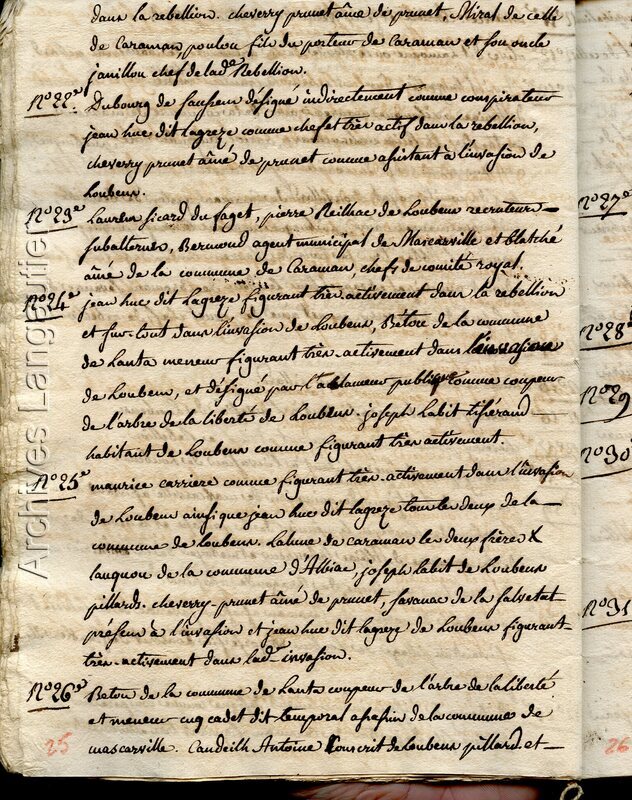 dans la rebellion. cheverry prunet âiné de prunet, Miral de celle
de Caraman, poulou fils du porteur de Caraman et son oncle
janillou chef de lad.e Rebellion.
N.o 22.e Dubourg de Saussens désigné indirectement comme conspirateur
jean huc dit lagreze comme chef et très actif dans la rébellion,
cheverry prunet âiné de prunet comme assistant à l'invasion de
Loubens.
N.o 23.e Laurens Sicard du faget, pierre Reilhac de Loubens recruteurs
subalternes, Bermond agent municipal de Mascarville et
âiné de la commune de Caraman, chefs de comité royal.
N.o 24.e jean huc dit Lagreze figurant très activement dans la rebellion
et sur-tout dans l'invasion de Loubens, Bétou de la commune
de Lanta meneur figurant très-activement dans l'invasion
de Loubens, et désigné par la clameur publique comme coupeur
de l'arbre de la liberté de Loubens. joseph Labit tisserand
habitant de Loubens comme figurant très activement.
N.o 25.e maurice carriere comme figurant très-activement dans l'invasion
de Loubens ainsi que jean huc dit lagreze tous les deux de la
commune de loubens. Lalune de caraman les deux frères
languou de la commune d'Albiac, joseph labit de Loubens
pillards. cheverry-prunet âiné de prunet, Savanac de la Salvetat
présens à l'invasion et jean huc dit lagreze de Loubens figurant
très-activement dans lad.e invasion.
N.o 26.e Betou de la commune de Lanta coupeur de l'arbre de la liberté
et meneur cuq cadet dit temporal assassin de la commune de
mascarville. Caudeilh Antoine Conscrit de Loubens pillard et
25
N.o 27.e
N.o 28.e
N.o 29
N.o 30
N.o 31
26
Archives Langautier